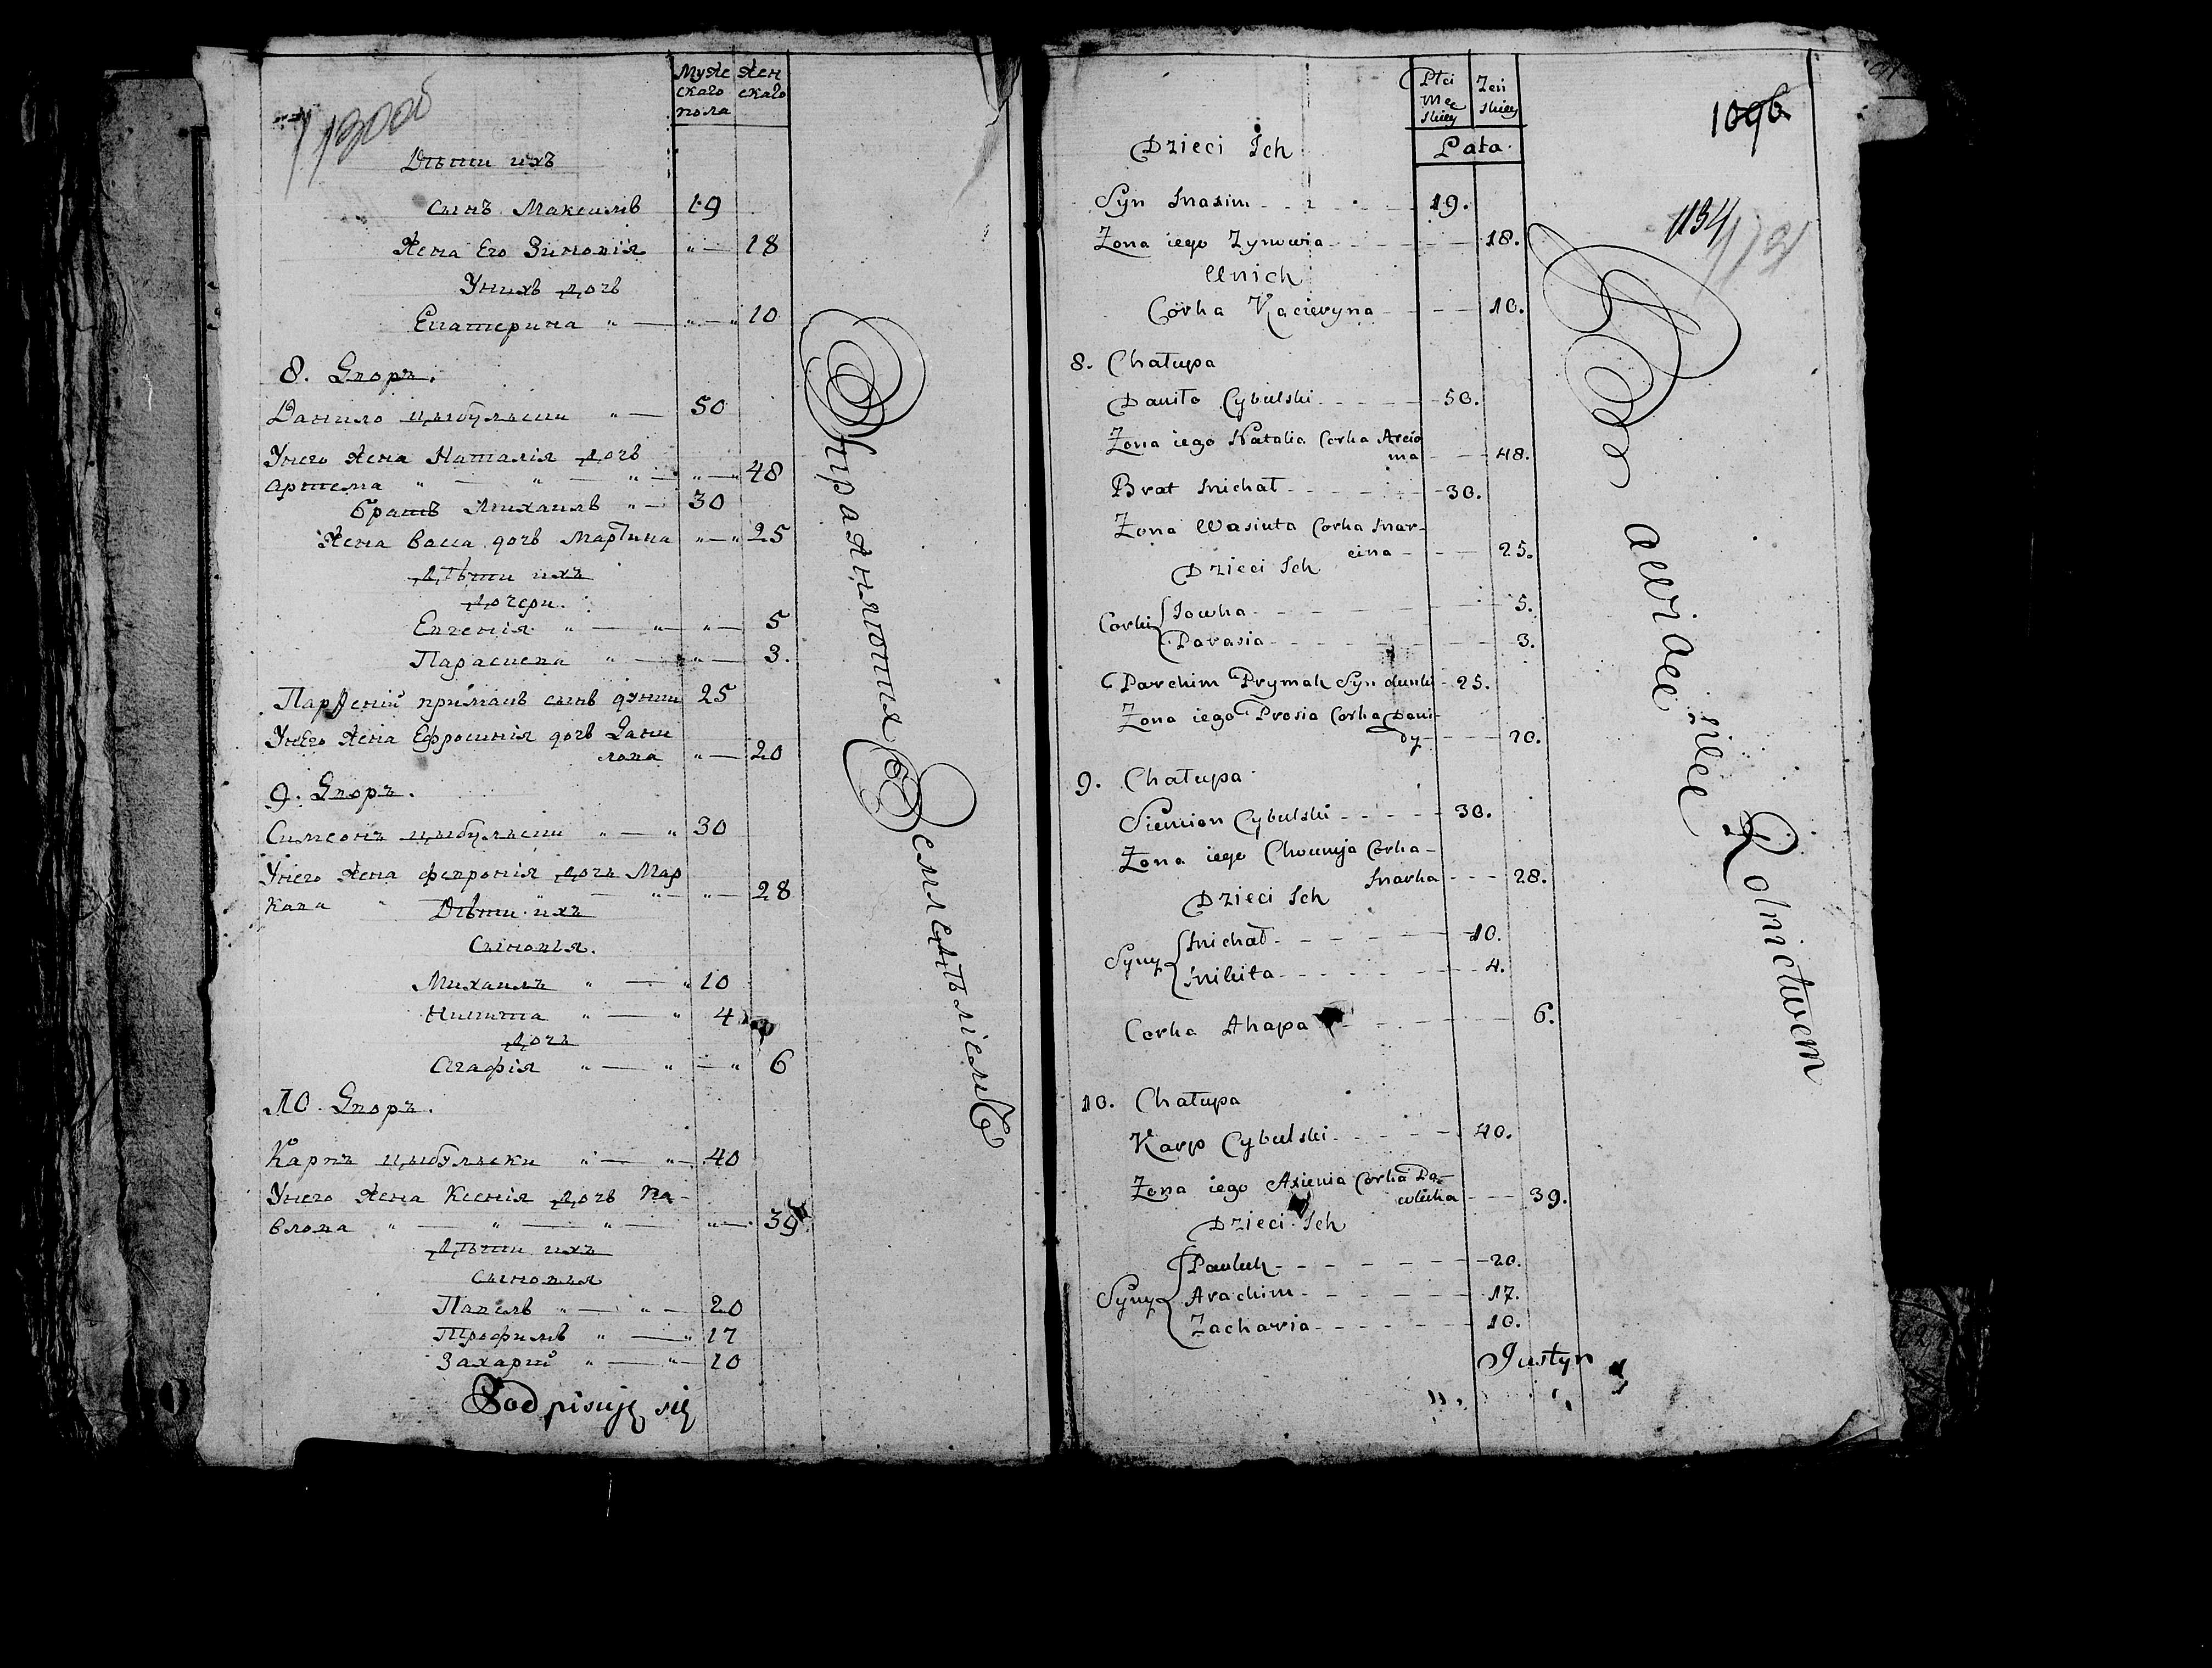 Мужескаго пола
Женскаго
1130 об
Дѣти ихъ
Сынъ Максимъ 19
Жена Его Зиновія " — 18
Унихъ дочь
Екатерина " — " — " 10
8. Дворъ.
Данило Цыбульски " — 50
Унего Жена Наталія дочь
Артема " — " — " — " — " 48
Братъ Михаилъ " — 30
Жена Васса дочь Мартина " — " 25
Дѣти ихъ
Дочери.
Евгенія " — " " — 5
Параскева " — " — 3.
Парѳеній примакъ сынъ думки 25
Унего Жена Ефросинія дочь Дани
лова " — 20
9. Дворъ.
Симеонъ Цыбульски " — " 30
Унего Жена февронія дочь Мар
кова " — " — " — 28
Дѣти ихъ
Сыновья.
Михаилъ " — " 10
Никита " — " 4
Дочь
Агафія " — " — " 6
10. Дворъ.
Карпъ Цыбульски " — " — 40
Унего Жена Ксенія дочь Па-
влова " — " — " — " — 39
Дѣти ихъ
Сыновья
Павелъ " — " — 20
Трофимъ " — " 17
Захарій " — " — 10
Podpisuję się
Упражняются Земледѣліемъ
Płci Męskiey
Żeńskiey
Lata
1096
1134
Dzieci Ich
Syn Maxim 19.
Zona iego Zynowia 18.
U nich
Corka Kacieryna 10.
8. Chałupa
Daniło Cybulski 50.
Zona iego Natalia Corka Arcio
ma 48.
Brat Michał 30.
Zona Wasiuta Corka Mar-
cina 25.
Dzieci Ich
Corki Jowha 5.
Parasia 3.
Parchim Prymak Syn dumki 25.
Zona iego Prosia Corka Dani-
ły 20.
9. Chałupa
Siemion Cybulski 30.
Zona iego Chowruja Corka
Marka 28.
Dzieci Ich
Syny Michał 10.
Mikita 4.
Corka Ahapa 6.
10. Chałupa
Karp Cybulski 40.
Zona iego Axienia Corka Pa-
wluka 39.
Dzieci Ich
Pauluk 20.
Syny Arachim 17.
Zacharia 10.
Justyn
Bawiące się Rolnictwem